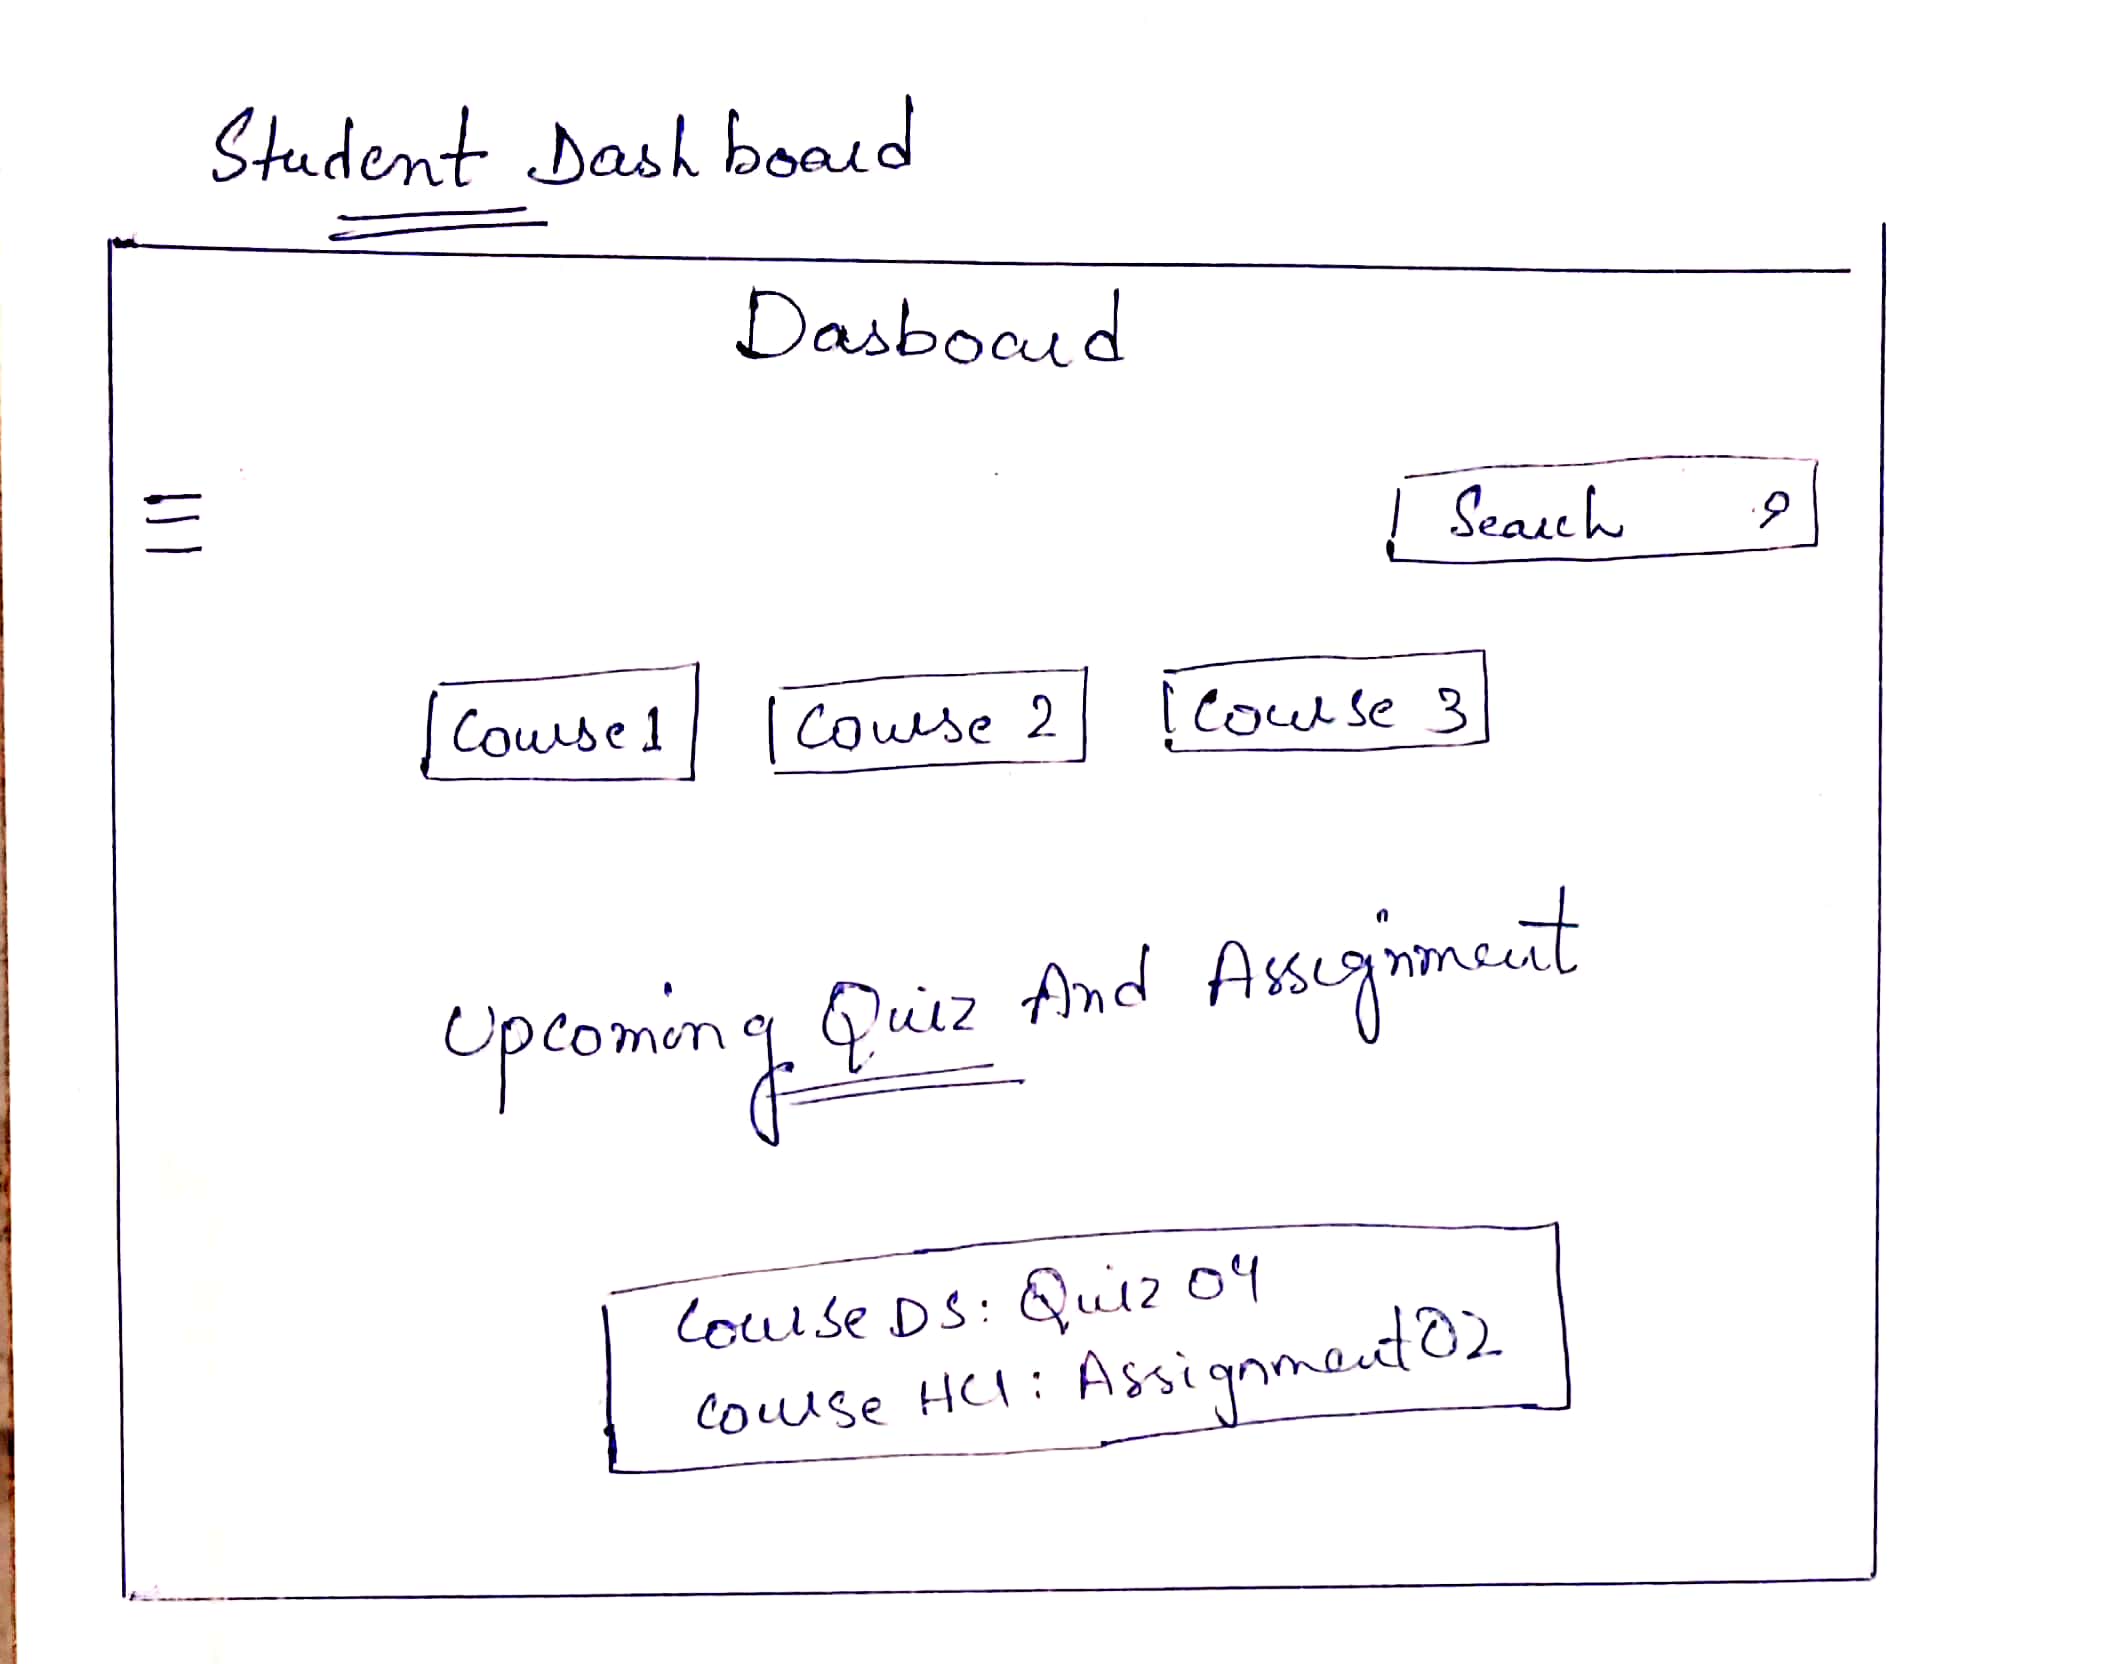 Student Dashboard
Dasboard
Search
Course 1
Course 2
Course 3
Upcoming Quiz And Assignment
Course DS: Quiz 04
Course HCI: Assignment 02